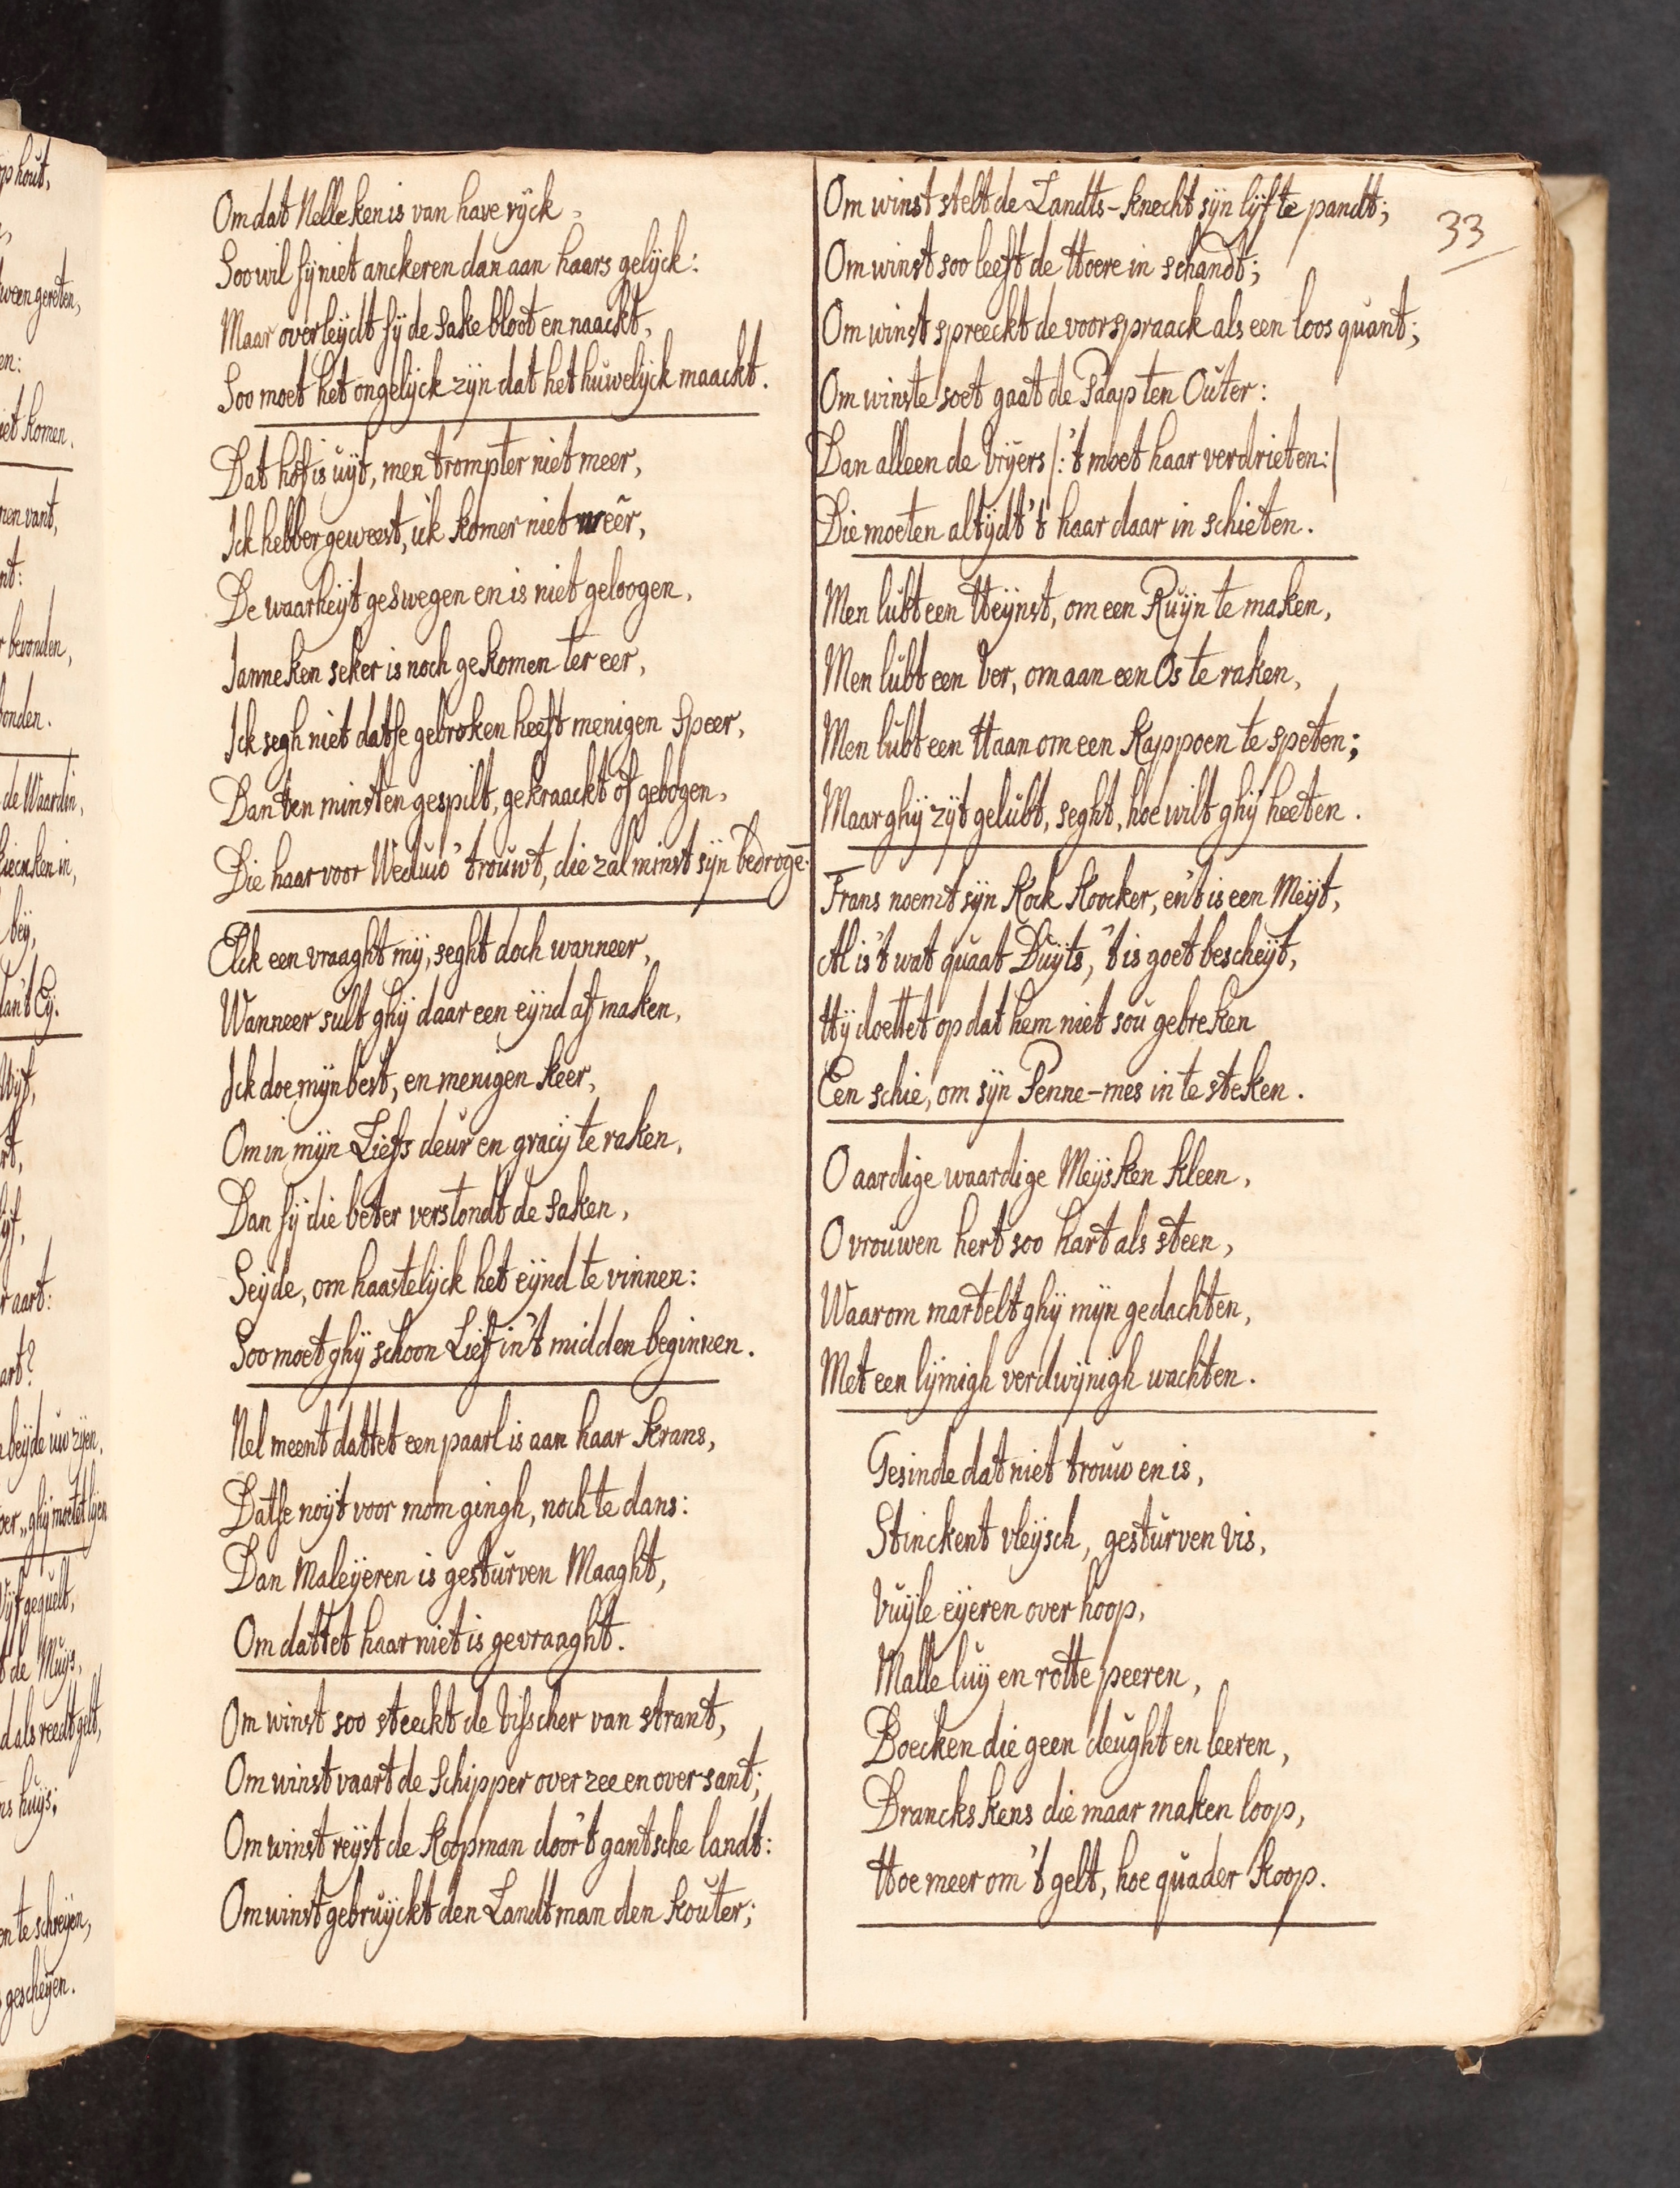 Omdat Nelleken is van have ryck,
Soo wil sy niet anckeren dan aan haars gelyck:
Maar overleydt sy de sake bloot en naackt,
Soo moet het ongelyck zyn dat het huwelyck maackt.
Dat hof is uyt, men trompter niet meer,
Ick hebber geweest, ick komer niet weêr,
De waarheyt geswegen en is niet geloogen,
Janneken seker is noch gekomen ter eer,
Ick segh niet datse gebroken heeft menigen Speer,
Dan ten minsten gespilt, gekraackt of gebogen,
Die haar voor Weduw' trouwt, die zal minst syn bedrogē.
Elck een vraaght my, seght doch wanneer,
Wanneer sult ghy daar een eynd af maken,
Ick doe myn best, en menigen keer,
Om in myn Liefs deur en gracy te raken,
Dan sy die beter verstondt de saken,
Seyde, om haastelyck het eynd te vinnen:
Soo moet ghy schoon Lief in't midden beginnen.
Nel meent dattet een paarl is aan haar Krans,
Datse noyt voor mom gingh, noch te dans:
Dan Maleyeren is gesturven Maaght,
Om dattet haar niet is gevraaght.
Om winst soo steeckt de Visscher van strant,
Om winst vaart de Schipper over zee en over sant;
Om winst reyst de Koopman door't gantsche landt:
Om winst gebruyckt den Landtman den Kouter;
Om winst stelt de Landts-Knecht syn lyf te pandt;
33
Om winst soo leeft de Hoere in schandt;
Om winst spreeckt de voorspraack als een loos quant;
Om winste soet gaat de Paap ten Outer:
Dan alleen de Vryers |:'t moet haar verdrieten:|
Die moeten altydt 't haar daar in schieten.
Men lubt een Heynst, om een Ruyn te maken,
Men lubt een Ver, om aan een Os te raken,
Men lubt een Haan om een Kappoen te speten;
Maar ghy zyt gelubt, seght, hoe wilt ghy heeten.
Frans noemt syn Kock Koocker, en't is een Meyt,
Al is't wat quaat Duyts, 't is goet bescheyt,
Hy doettet op dat hem niet sou gebreken
Een schie, om syn Penne-mes in te steken.
O aardige waardige Meysken kleen,
O vrouwen hert soo hart als steen,
Waarom martelt ghy myn gedachten,
Met een lymigh verdwynigh wachten.
Gesinde dat niet trouw en is,
Stinckent vleysch, gesturven Vis,
Vuyle eyeren over hoop,
Malle luy en rotte peeren,
Boecken die geen deught en leeren,
Dranckskens die maar maken loop,
Hoe meer om 't gelt, hoe quader Koop.